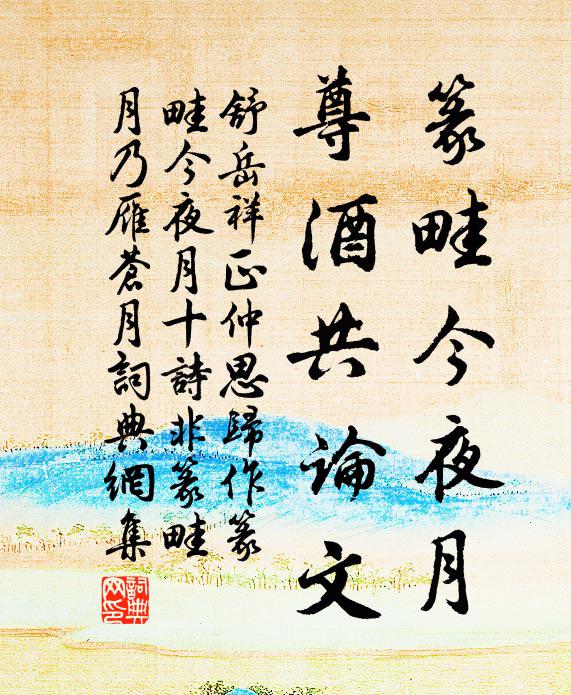 篆畦今夜月
尊酒共論文
舒岳祥正仲思歸作篆
畦今夜月十詩非篆畦
月乃雁蒼月詞典網集